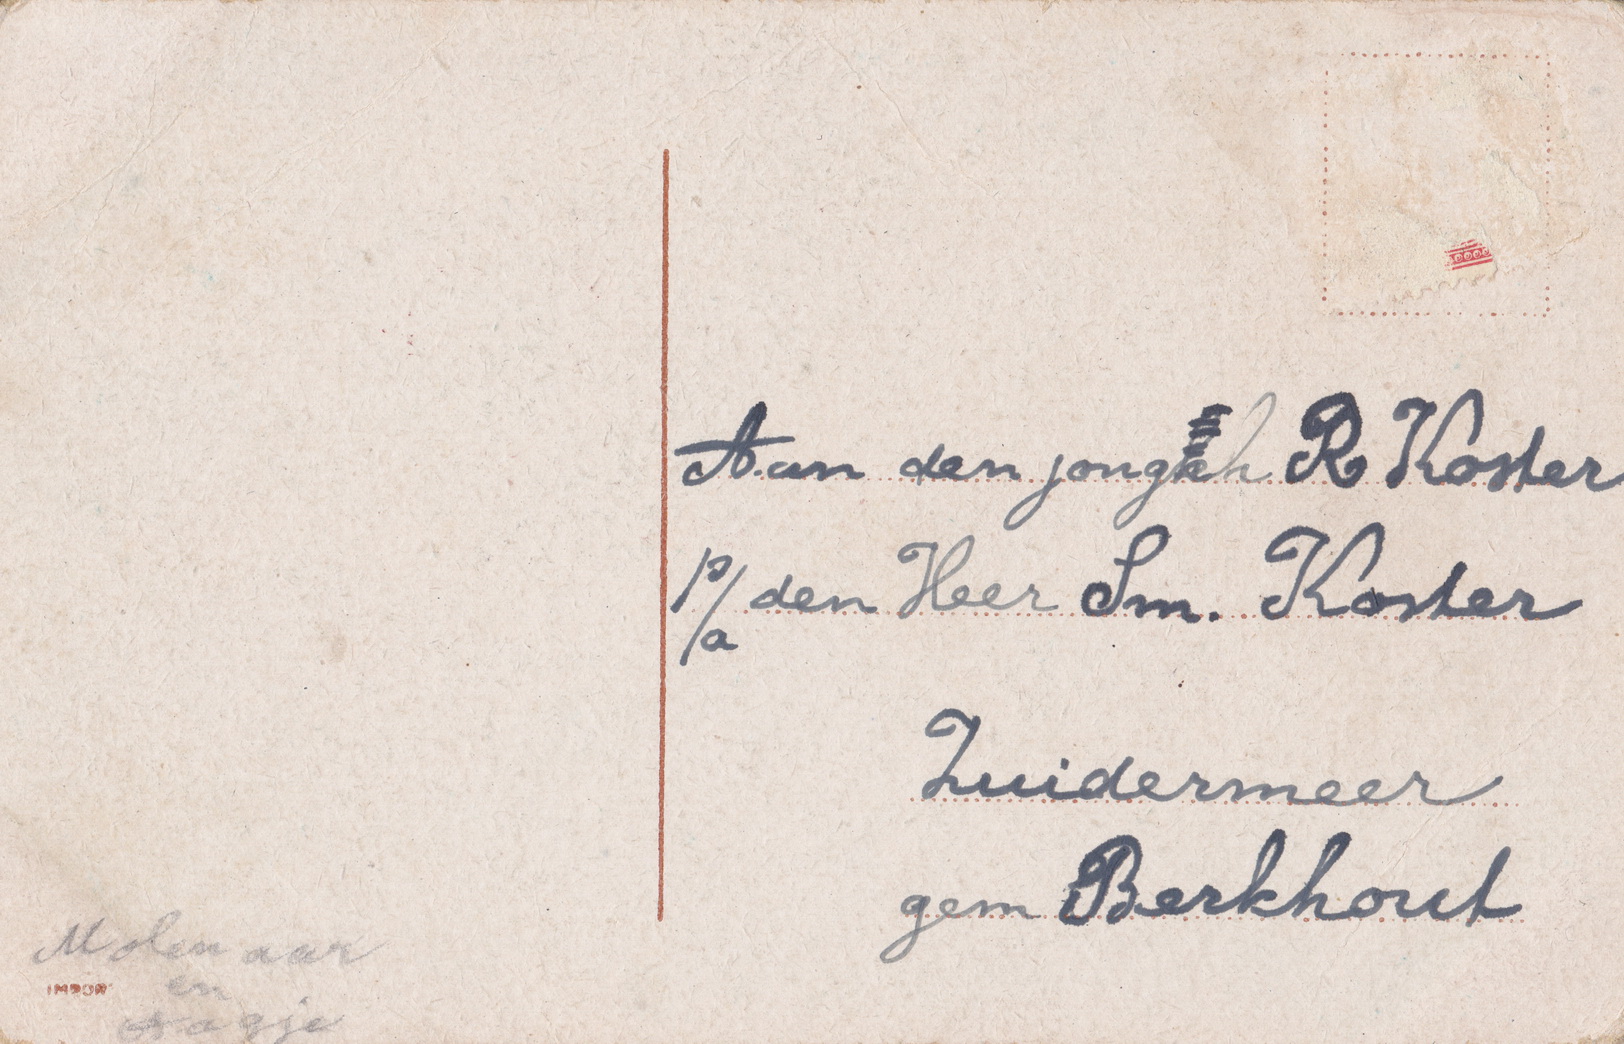 Aan den jongeh R Koster
p/a den Heer Sm. Koster
Zuidermeer
gem Berkhout
Molenaar
en
Aagje
IMPOR